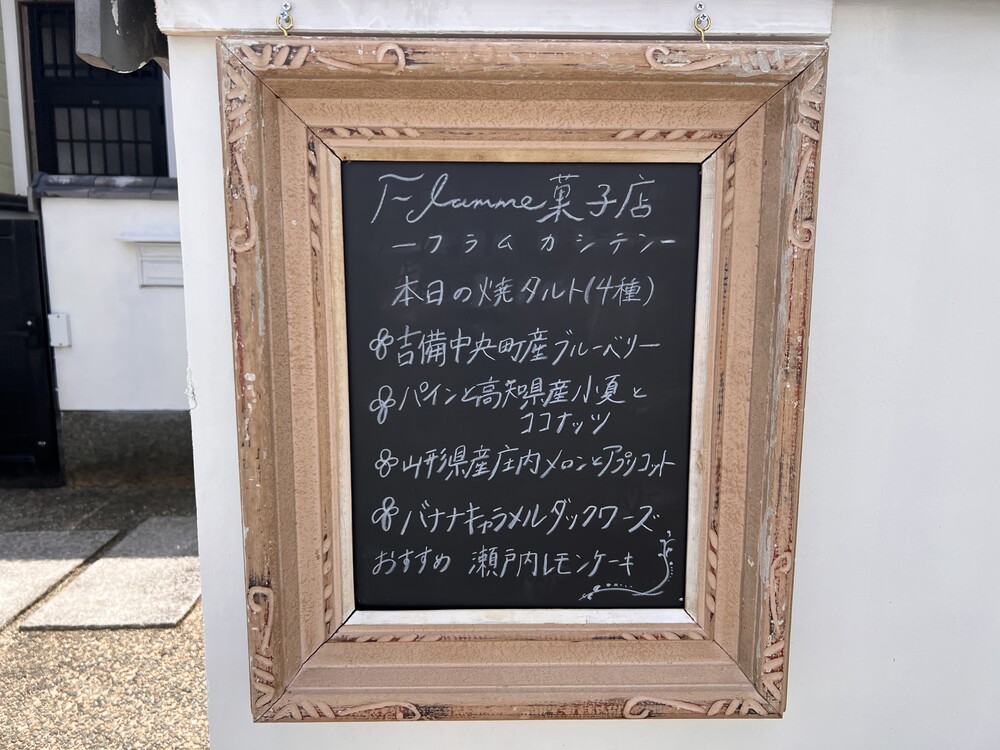 Flamme菓子店
ーフラムカシテンー
本日の焼タルト(4種)
吉備中央町産ブルーベリー
パインと高知県産小夏と
ココナッツ
山形県産庄内メロンとアプリコット
バナナキャラメルダックワーズ
おすすめ 瀬戸内レモンケーキ